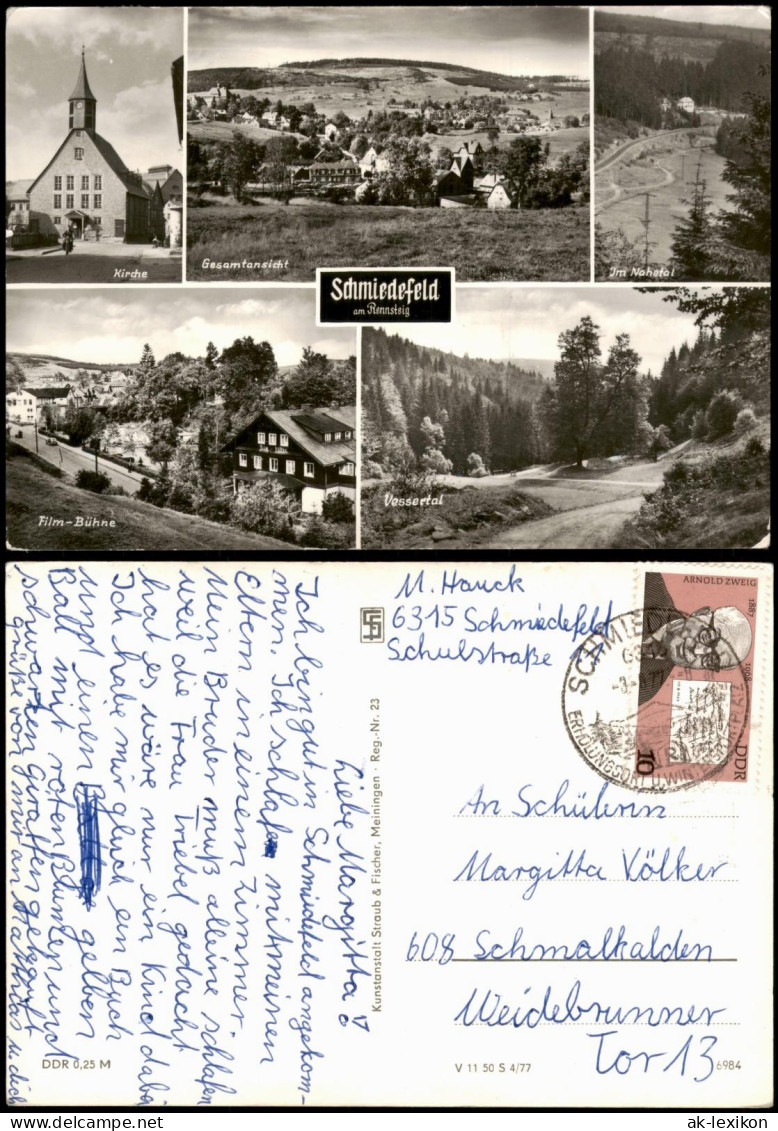 Kirche
Gesamtansicht
Im Nahetal
Schmiedefeld
am Rennsteig
Film-Bühne
Vessertal
Liebe Margitta!
Ich bin gut in Schmiedefeld angekom-
men. Ich schlafe mit meinen
Eltern in einem Zimmer.
Mein Bruder muß alleine schlafen
weil die Frau Triebel gedacht
hat es wäre nur ein Kind dabei
Ich habe mir gleich ein Buch
und einen gelben
Ball mit roten Blumen und
schwarzen Giraffen gekauft
grüße von mir an u. dich
M. Hauck
6315 Schmiedefeld
Schulstraße 17
ARNOLD ZWEIG
1887
1968
DDR
10
SCHMIED
ERHOLUNGSORT U. WIN
An Schülerin
Margitta Völker
608 Schmalkalden
Weidebrunner
Tor 13
Kunstanstalt Straub & Fischer, Meiningen · Reg.-Nr. 23
DDR 0,25 M
V 11 50 S 4/77
6984
ak-lexikon
ak-lexikon